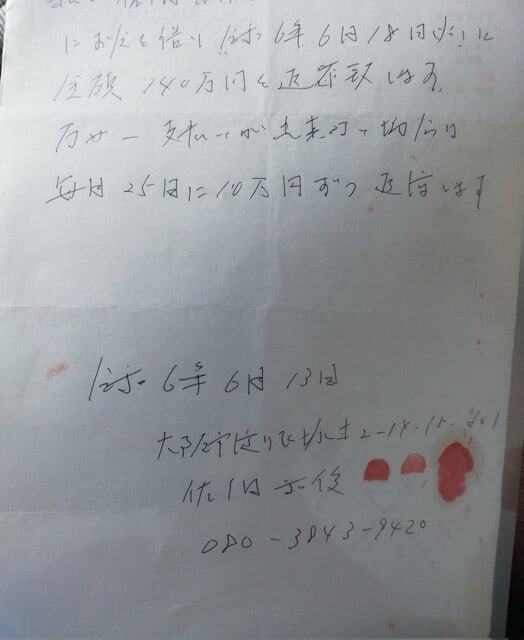 にお金を借り令和6年6月18日迄に
全額 140万円を返済致します。
万が一 支払いが出来ない場合は
毎月25日に10万円ずつ返済します
令和6年6月13日
大阪市淀川区 2-14-15
佐 俊
080-3843-9420